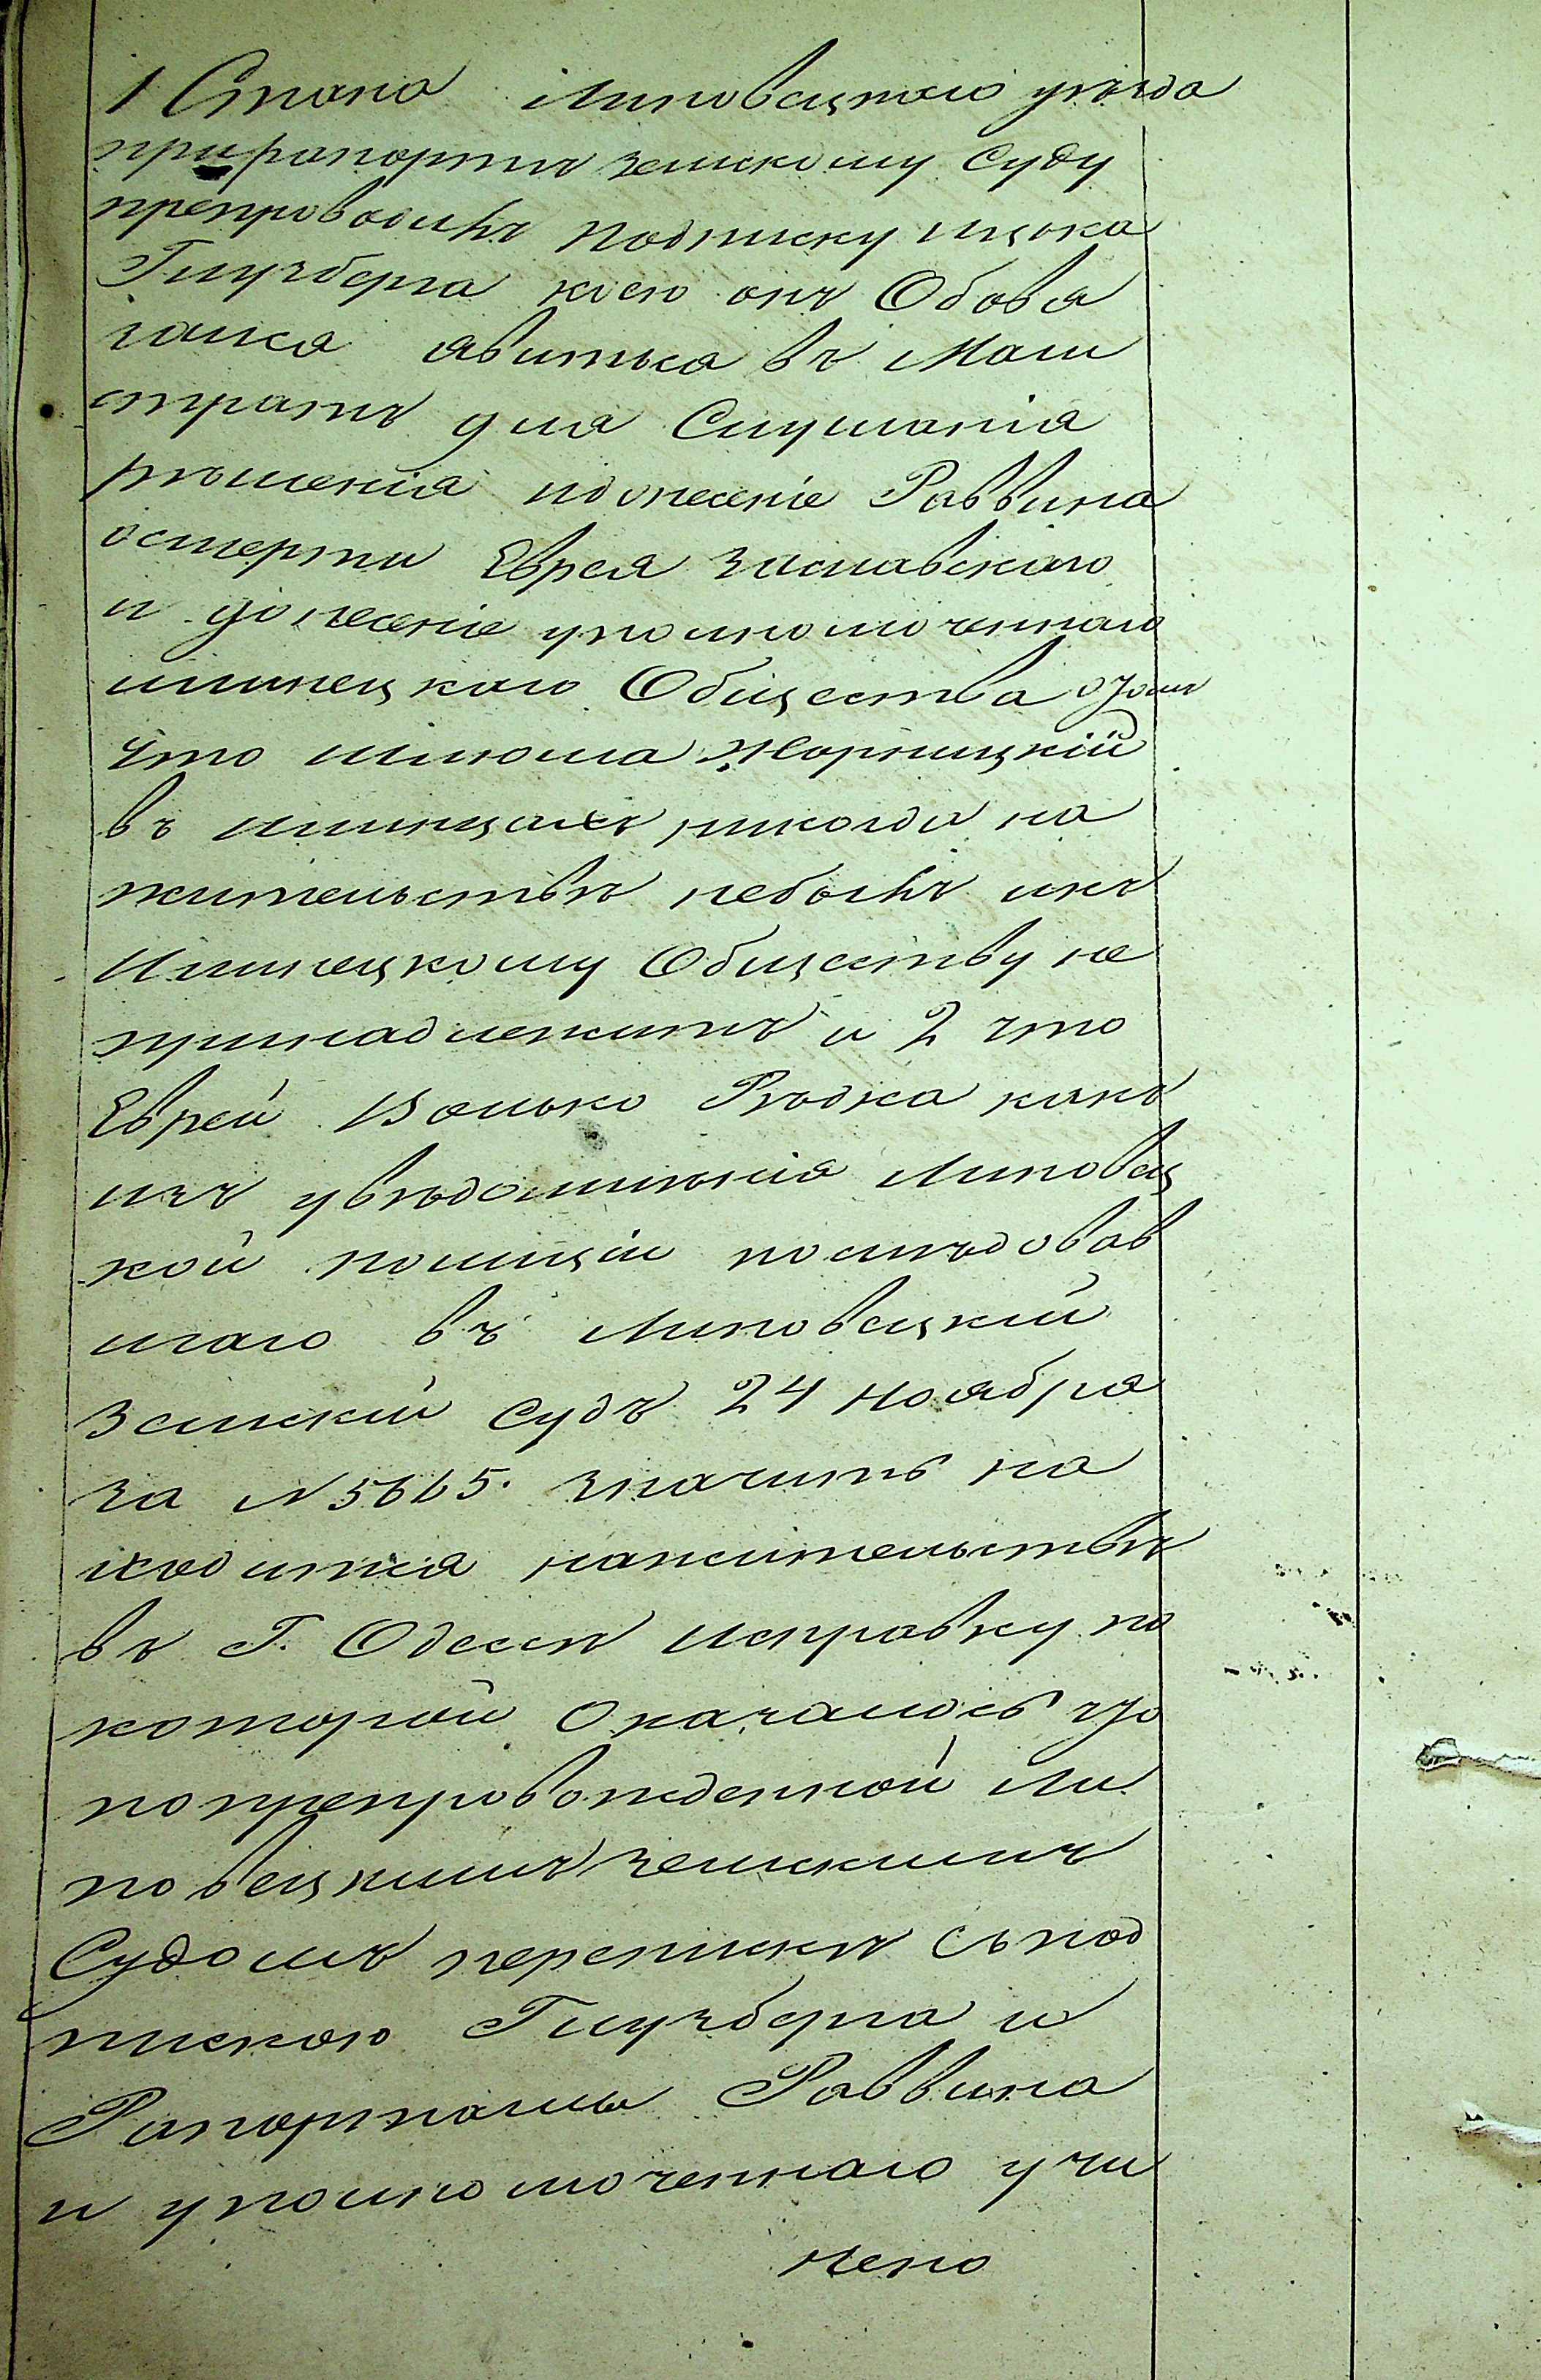 1 Стана Липовецкаго уѣзда
при рапортѣ земскому Суду
препроводилъ подписку Ицка
Глузберга коею онъ Обова
зался явиться въ Маги
стратъ для Слушанія
рѣшенія идонесеніе Раввина
осмерти Еврея Заславскаго
и донесеніе уполномоченнаго
илинецкаго Общества отом
что Шлиома Жорницкій
въ Илинцахъ никогда на
жительствѣ небылъ икъ
Илинецкому Обществу не
принадлежитъ и 2 что
Еврей Волько Рѣдка какъ
изъ увѣдомленія Липовец
кой полиціи послѣдовав
шаго въ Липовецкій
Земскій Судъ 24 Ноября
за N 5665. значитъ на
ходится нажительствѣ
въ Г. Одессѣ Исправку по
которой Оказалось что
попрепровожденной Ли
повецкимъ земскимъ
Судомъ перепискѣ съпод
пискою Глузберга и
Рапортамы Раввина
и уполномоченнаго учи
нено